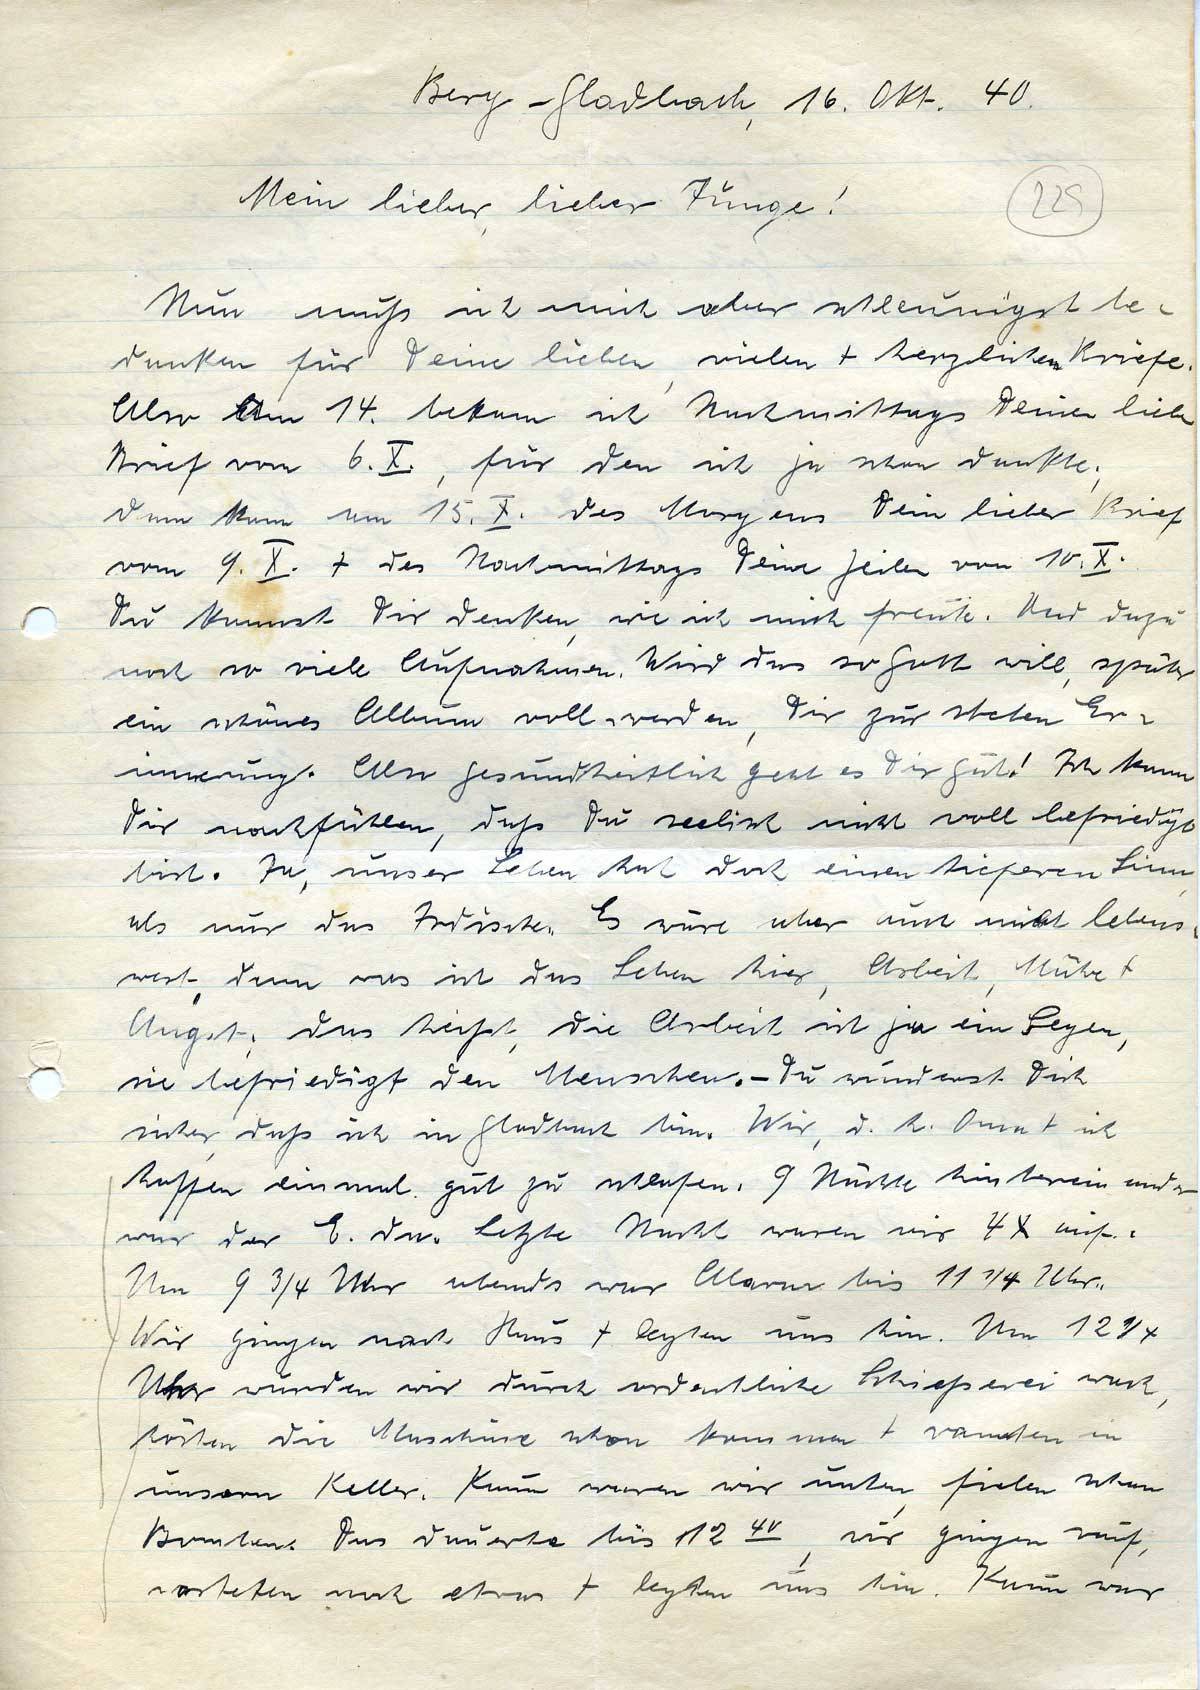 Berg-Gladbach, 16. Okt. 40.
Mein lieber, lieber Junge!
225
Nun muß ich mich aber schleunigst be-
danken für Deine lieben, vielen + herzlichen Briefe.
Also Am 14. bekam ich Nachmittags Deinen lieben
Brief vom 6. X., für den ich ja schon dankte,
dann kam am 15. X. des Morgens Dein lieber Brief
vom 9. X. + des Nachmittags Deine Zeilen vom 10. X.
Du kannst Dir denken, wie ich mich freute. Und dazu
noch so viele Aufnahmen. Wird das so Gott will, später
ein schönes Album voll werden, Dir zur steten Er-
innerung. Also gesundheitlich geht es Dir gut! Ich kann
Dir nachfühlen, daß Du seelisch nicht voll befriedigt
bist. Ja, unser Leben hat doch einen tieferen Sinn,
als nur das Irdische. Es wäre aber auch nicht lebens-
wert, denn was ist das Leben hier, Arbeit, Mühe +
Angst, das heißt, die Arbeit ist ja ein Segen,
sie befriedigt den Menschen. – Du wunderst Dich
sicher, daß ich in Gladbach bin. Wir, d. h. Oma + ich
hoffen einmal gut zu schlafen. 9 Nächte hintereinander
war der E. da. Letzte Nacht waren wir 4 X auf.
Um 9 3/4 Uhr abends war Alarm bis 11 1/4 Uhr.
Wir gingen nach Haus + legten uns hin. Um 12 1/4
Uhr wurden wir durch ordentliche Schießerei wach,
hörten die Maschine schon kommen + rannten in
unsern Keller. Kaum waren wir unten, fielen schon
Bomben. Das dauerte bis 12 40, wir gingen rauf,
warteten noch etwas + legten uns hin. Kaum war